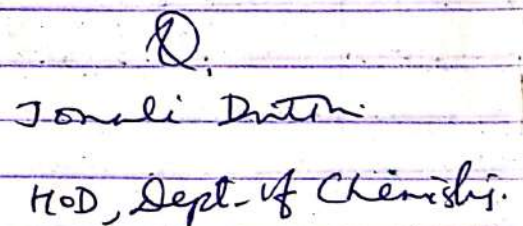 Jonali Dutta
HOD, Dept. of Chemistry.